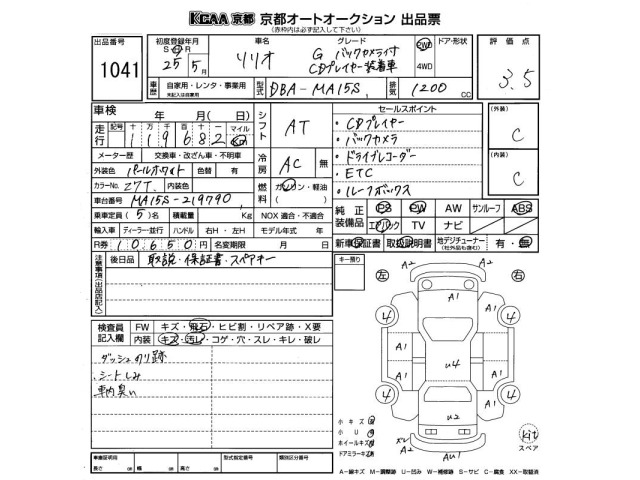 KCAA 京都 京都オートオークション 出品票
(赤枠内は必ず記入して下さい)
出品番号
1041
初度登録年月
S・H・R
25年 5月
車名
ソリオ
グレード
G バックカメラ付
CDプレイヤー装着車
2WD
4WD
ドア・形状
評価点
3.5
車歴
自家用・レンタ・事業用
未記入は自家用
型式
DBA-MA15S
排気
1200 CC
車検 年 月( 日)
走行
記号 十 万 千 百 十 一 マイル
1 1 9 6 8 2 Km
シフト
AT
メーター歴 交換車・改ざん車・不明車
外装色 パールホワイト 色替 有
カラーNo. Z7T 内装色
冷房
AC 無
燃料
ガソリン・軽油
( )
車台番号 MA15S-219790
乗車定員 ( 5 )名 積載量 Kg NOX 適合・不適合
輸入車 ディーラー・並行 ハンドル 右H・左H モデル年式 年
R券 10650円 名変期限 月 日
セールスポイント
・CDプレイヤー
・バックカメラ
・ドライブレコーダー
・ETC
・ルーフボックス
(外装)
C
(内装)
C
純正装備品
PS PW AW サンルーフ ABS
エアバック TV ナビ
新車保証書 取扱説明書 地デジチューナー 有・無
(社外品も含む)
注意事項(出品店記入)
後日品 取説・保証書・スペアキー
キー預り
左 右
検査員記入欄
FW キズ・飛石・ヒビ割・リペア跡・X要
内装 キズ・汚レ・コゲ・穴・スレ・キレ・破レ
ダッシュのり跡
・シートしみ
車内臭い
A2 A2
A1
4 4
A1 A1
u4
A1 A1
4 u2 4
A2
Au1
小キズ
小U
ホイールキズ
ドアミラーキズ
kit
スペア
車庫証明用
長さ cm 幅 cm 高さ cm
型式指定番号
類別区分番号
A-線キズ M-調整跡 U-凹み W-補修跡 S-サビ C-腐食 XX-取替済